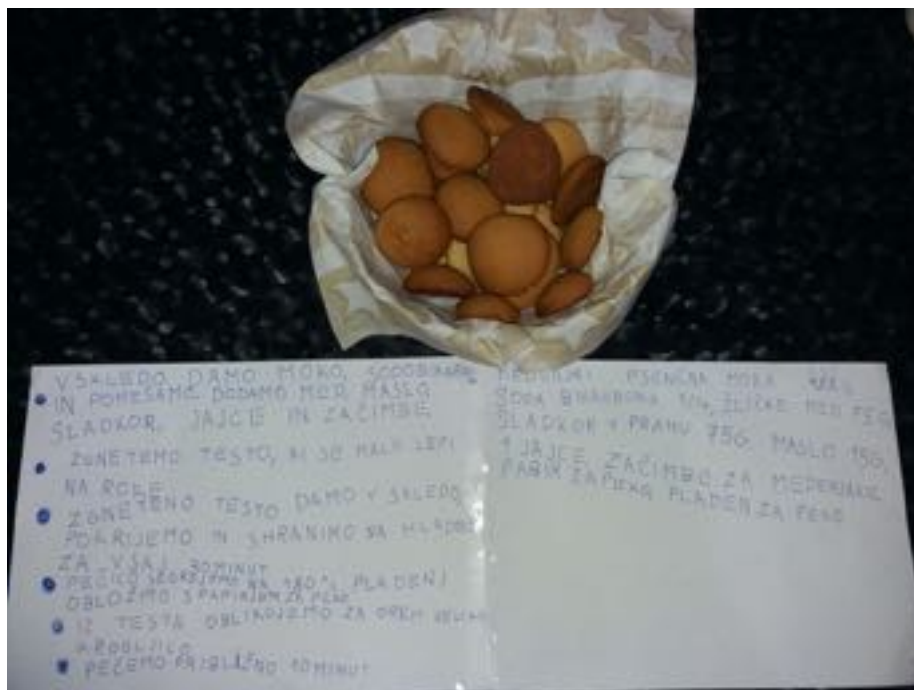 V SKLEDO DAMO MOKO,
IN POMEŠAMO DODAMO MED MASLO
SLADKOR, JAJCE IN ZAČIMBE
ZGNETEMO TESTO, KI SE MALO LEPI
NA ROKE
ZGNETENO TESTO DAMO V SKLEDO
POKRIJEMO IN SHRANIMO NA HLADNO
ZA VSAJ 30 MINUT
PEČICO SEGREJEMO NA 180°C PLADENJ
OBLOŽIMO S PAPIRJOM ZA PEKO
IZ TESTA OBLIKUJEMO ZA OREH VELIKE
KROGLJICE
PEČEMO PRIBLIŽNO 10 MINUT
PŠENIČNA MOKA
SODA BIKARBONA 1/4 ŽLIČKE MED
SLADKOR V PRAHU 75G, MASLO 15G,
1 JAJCE, ZAČIMBO ZA MEDENJAKE
PLADEN ZA PEKO